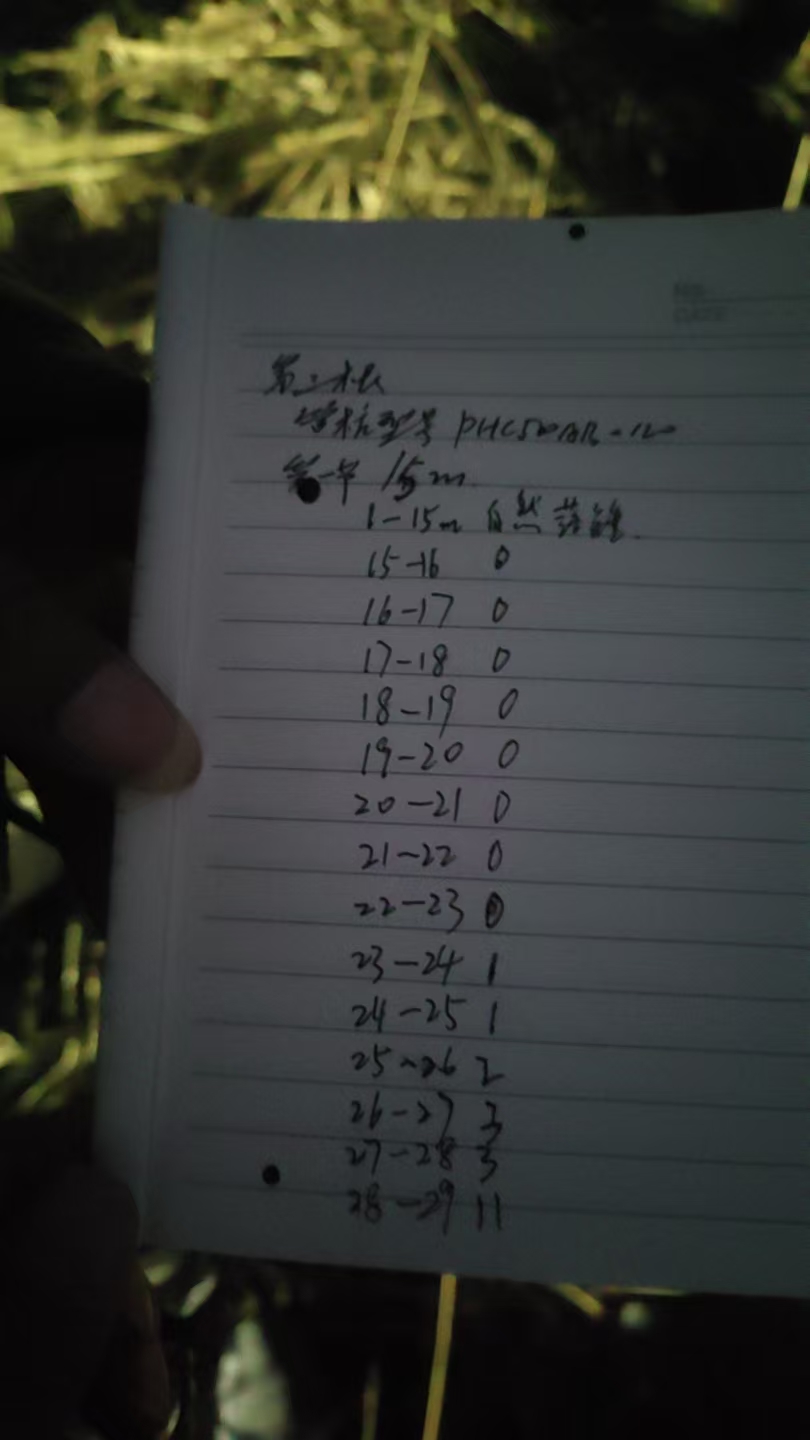 NO.
DATE
第二根
管桩型号 PHC500AB-120
第一节 15m
1-15m 自然落锤.
15-16 0
16-17 0
17-18 0
18-19 0
19-20 0
20-21 0
21-22 0
22-23 0
23-24 1
24-25 1
25-26 2
26-27 3
27-28 3
28-29 11